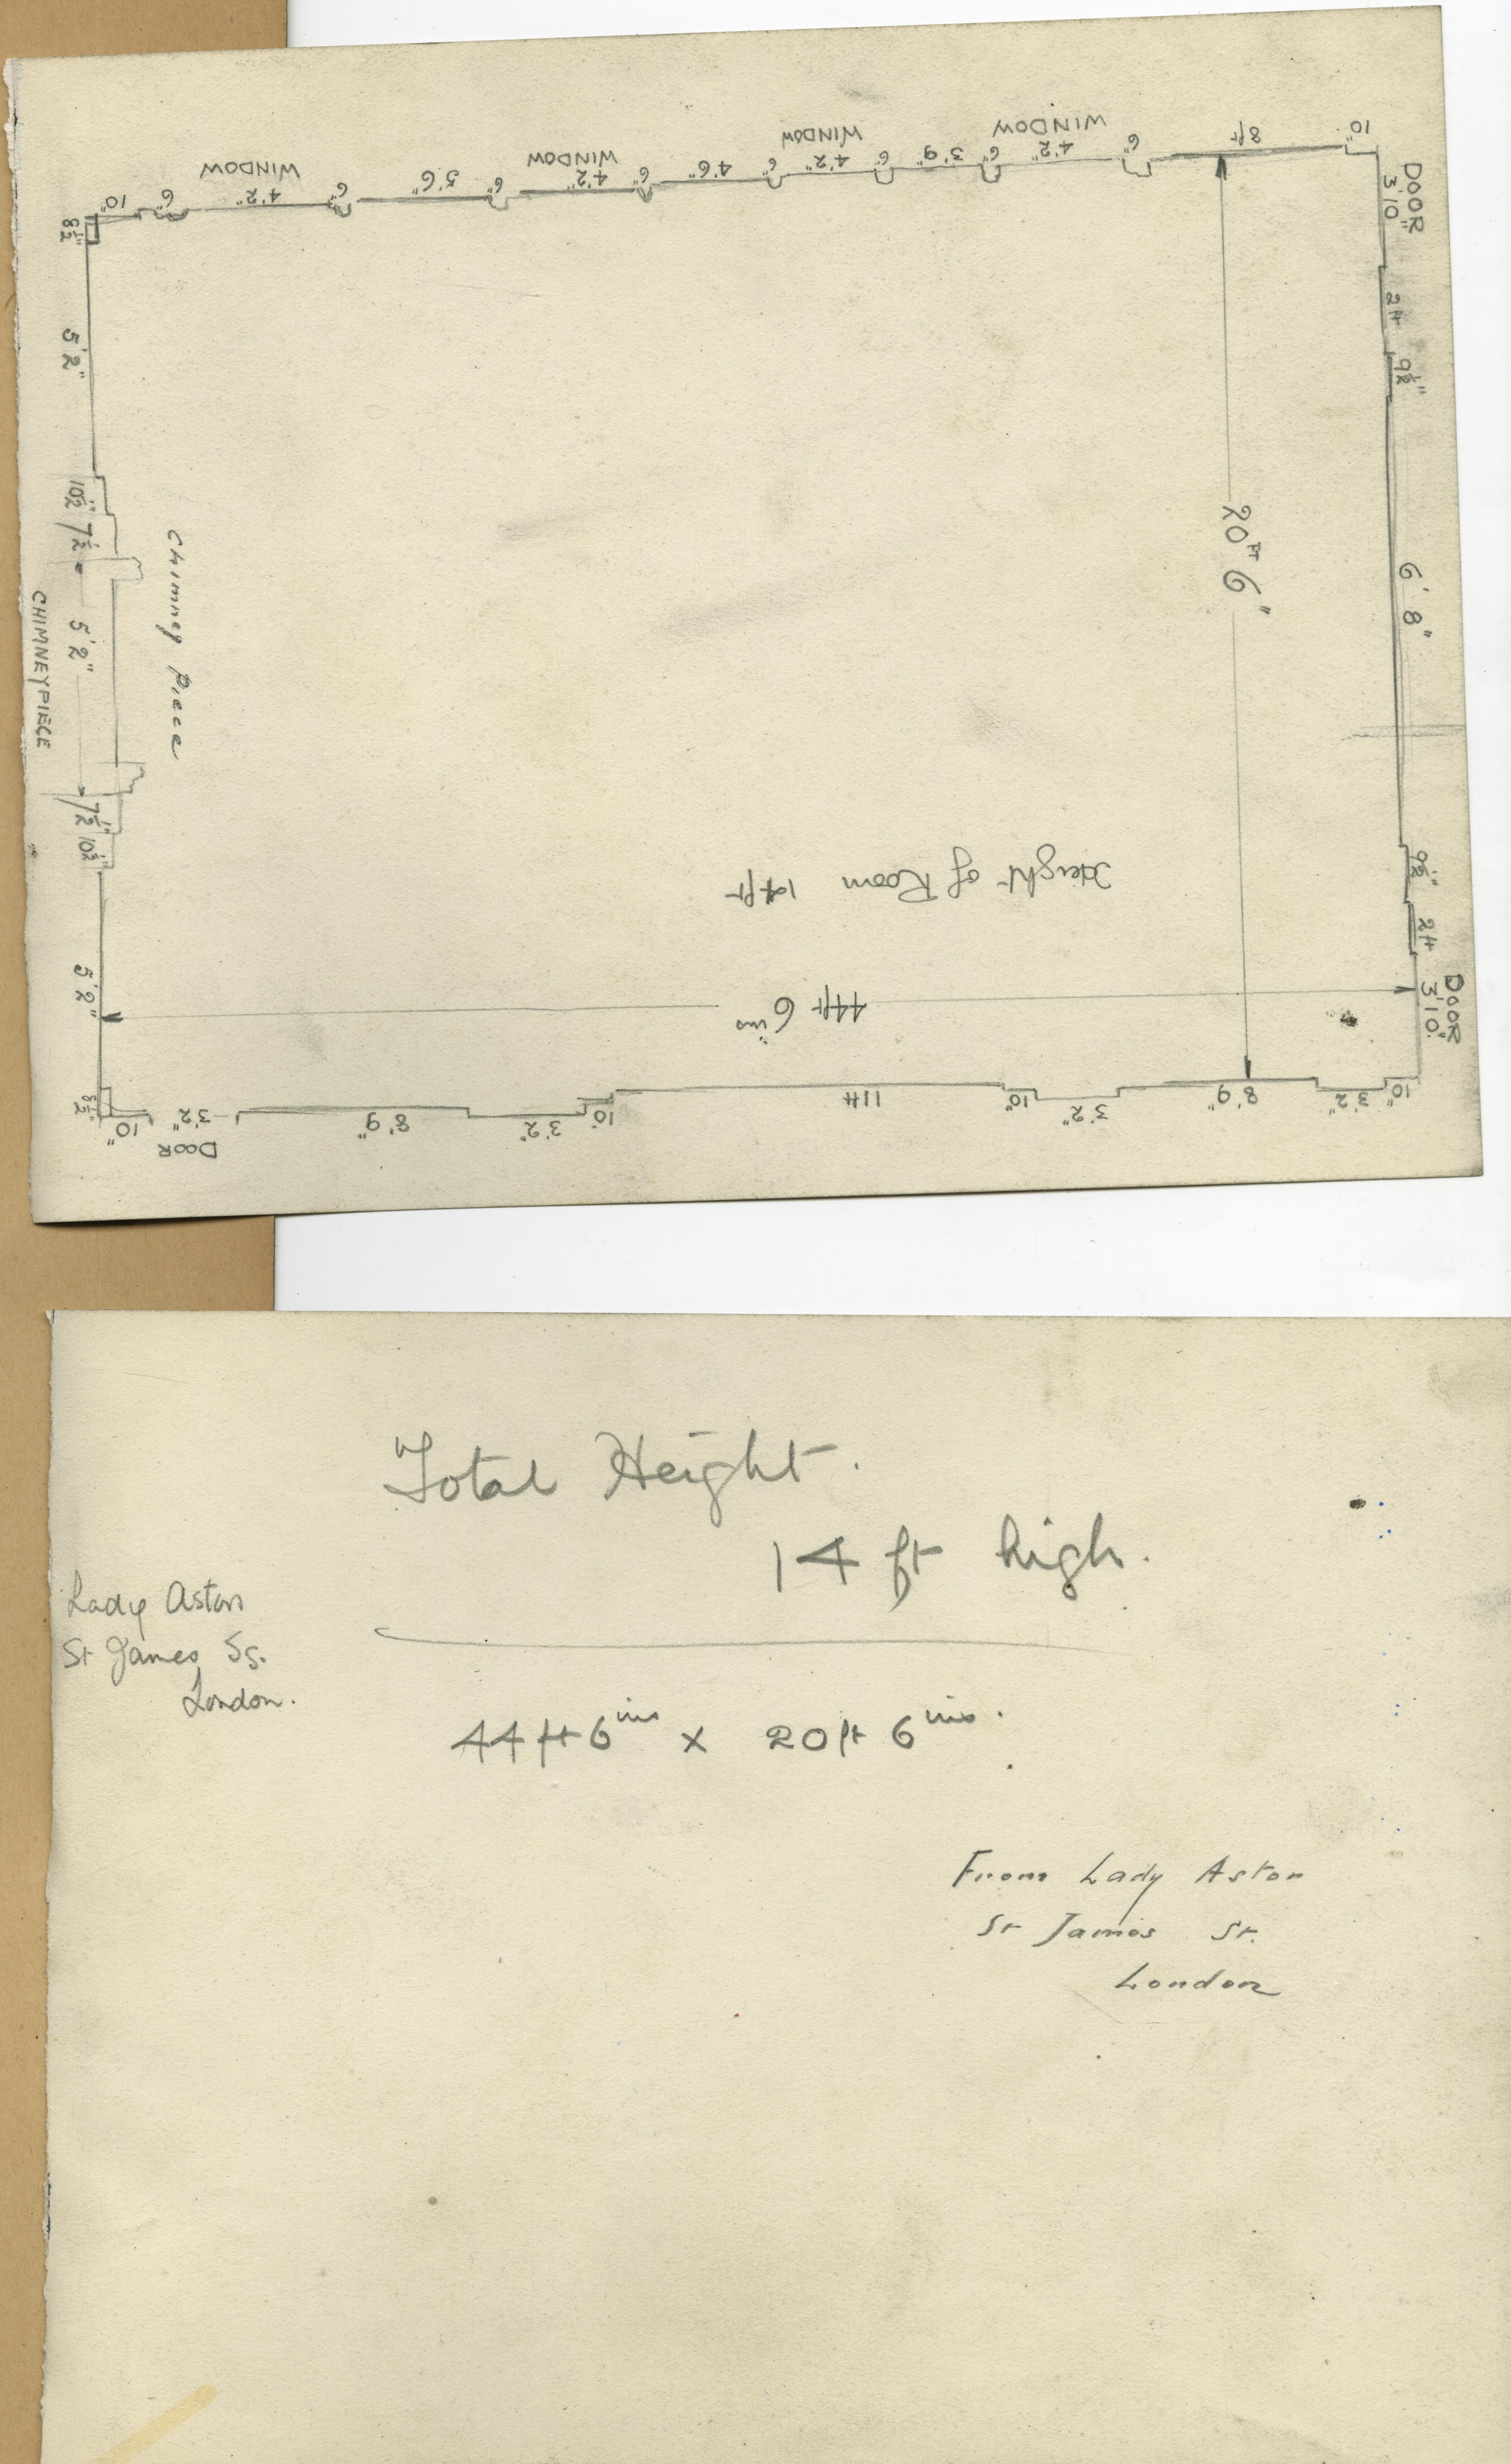 WINDOW
WINDOW
WINDOW
WINDOW
10"
8ft
6"
4'2"
6"
3'9"
6"
4'2"
6"
4'6"
6"
4'2"
6"
5'6"
6"
4'2"
6"
10"
8½"
5'2"
10½"
7½"
5'2"
CHIMNEYPIECE
Chimney Piece
7½"
10½"
5'2"
8½"
DOOR
3'10"
2ft
9½"
6'8"
9½"
2ft
DOOR
3'10"
20FT 6"
Height of Room 14ft
44ft 6ins
10"
3'2"
8'9"
3'2"
10"
11ft
10"
3'2"
8'9"
3'2"
10"
DOOR
Total Height.
14 ft high.
Lady Astor
St James Sq.
London.
44ft 6ins x 20ft 6ins.
From Lady Astor
St James St.
London